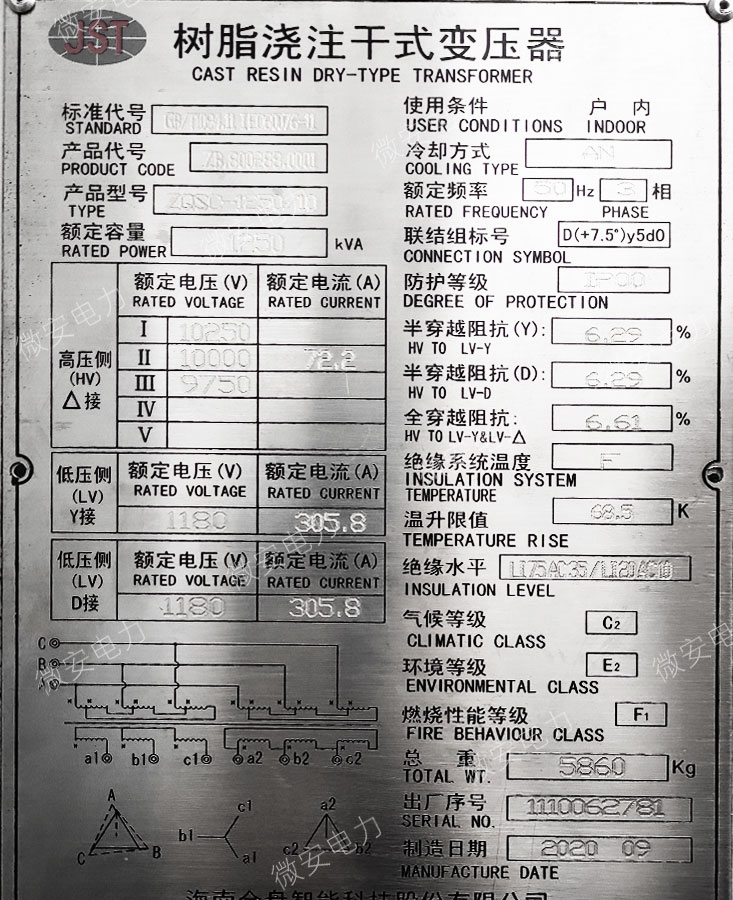 JST
树脂浇注干式变压器
CAST RESIN DRY-TYPE TRANSFORMER
标准代号
STANDARD
产品代号
PRODUCT CODE
产品型号
TYPE
额定容量
RATED POWER 1250 kVA
额定电压(V) 额定电流(A)
RATED VOLTAGE RATED CURRENT
高压侧
(HV)
△接
I 10250
II 10000 72.2
III 9750
IV
V
低压侧
(LV)
Y接
额定电压(V) 额定电流(A)
RATED VOLTAGE RATED CURRENT
1180 305.8
低压侧
(LV)
D接
额定电压(V) 额定电流(A)
RATED VOLTAGE RATED CURRENT
1180 305.8
C
B
A
a1 b1 c1 a2 b2 c2
A
C B
c1
b1
a1
a2
c2 b2
使用条件 户内
USER CONDITIONS INDOOR
冷却方式 AN
COOLING TYPE
额定频率 50 Hz 3 相
RATED FREQUENCY PHASE
联结组标号 D(+7.5°)y5d0
CONNECTION SYMBOL
防护等级 IP00
DEGREE OF PROTECTION
半穿越阻抗(Y): 6.29 %
HV TO LV-Y
半穿越阻抗(D): 6.29 %
HV TO LV-D
全穿越阻抗: 6.61 %
HV TO LV-Y&LV-△
绝缘系统温度 F
INSULATION SYSTEM
TEMPERATURE
温升限值 68.5 K
TEMPERATURE RISE
绝缘水平 LI75AC35/LI20AC10
INSULATION LEVEL
气候等级 C2
CLIMATIC CLASS
环境等级 E2
ENVIRONMENTAL CLASS
燃烧性能等级 F1
FIRE BEHAVIOUR CLASS
总重 5860 Kg
TOTAL WT.
出厂序号 1110062781
SERIAL NO.
制造日期 2020 09
MANUFACTURE DATE
海南金盘智能科技股份有限公司
微安电力